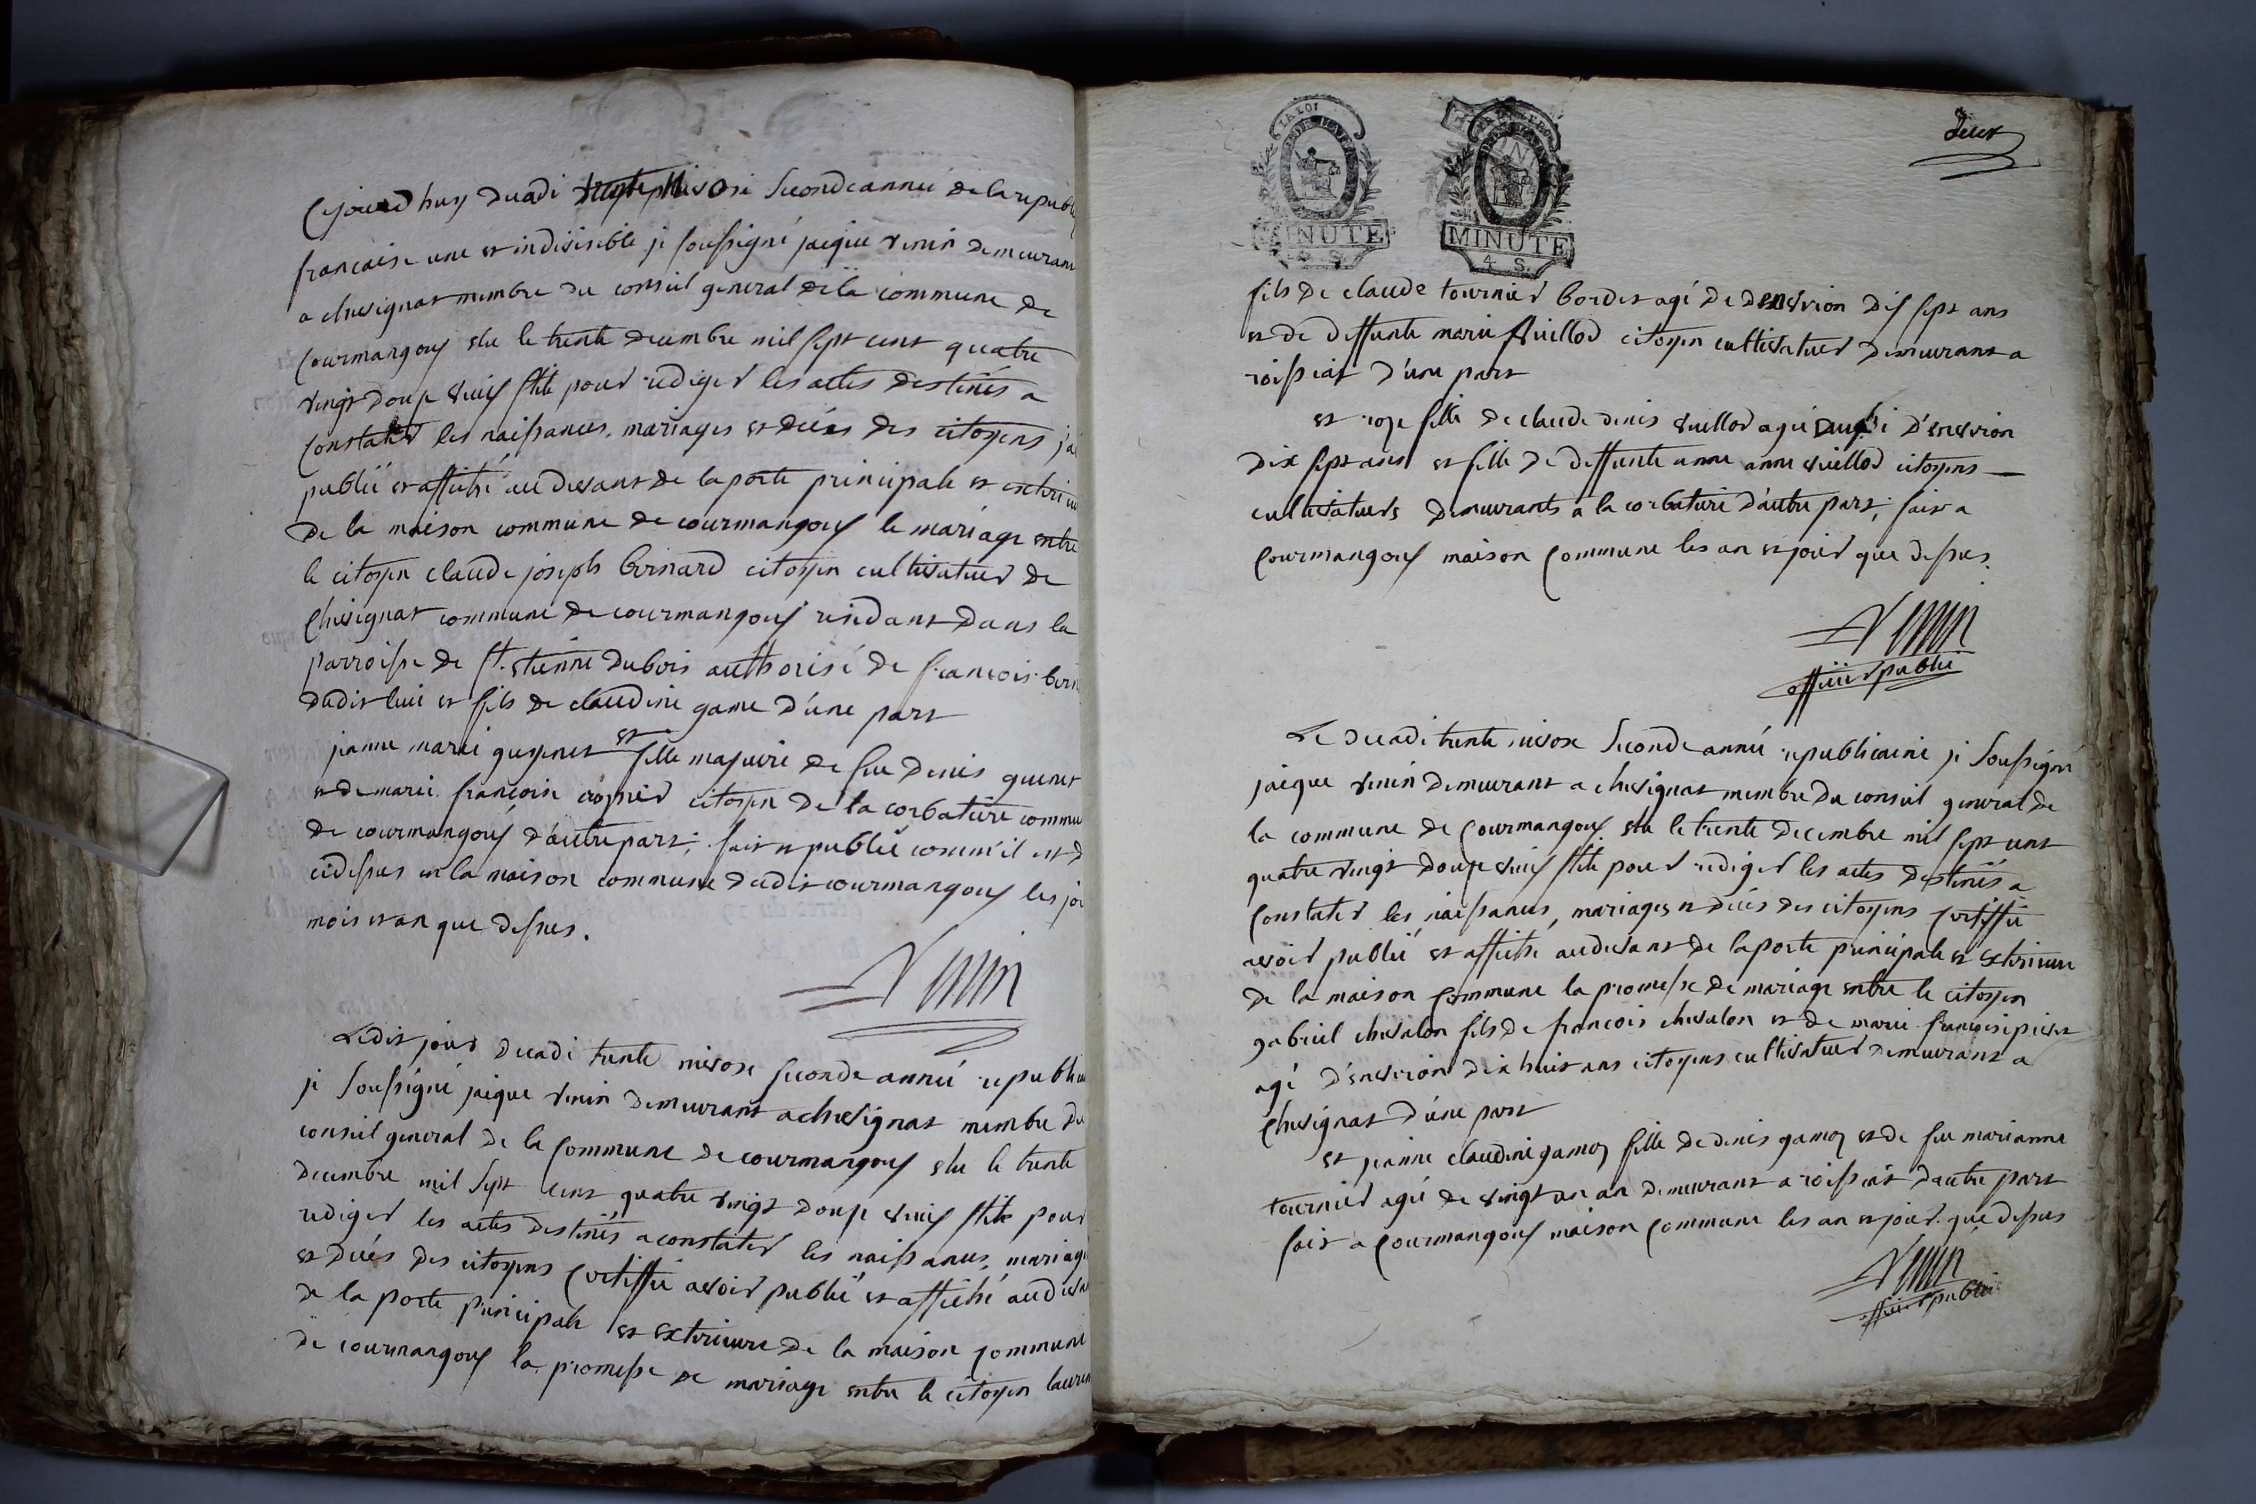 Cejourdhuy decadi trente nivose seconde année de la republi
francaise une et indivisible je soussigné jacque venin demeurant
a chevignat membre du conseil general de la commune de
Courmangoux elu le trente decembre mil sept cent quatre
vingt douze vieux stile pour rediger les actes destinés a
Constater les naissances, mariages et décés des citoyens j'ai
publié et affiché au devant de la porte principale et exterieu
de la maison commune de courmangoux le mariage entre
le citoyen claude joseph bernard citoyen cultivateur de
Chevignat commune de courmangoux residant dans la
parroisse de st. etienne dubois authorisé de francois bern
dudit lieu et fils de claudine game d'une part
et
janne marie guyenet fille majeure de feu denis guenet
et de marie francoise croyner citoyen de la corbatiere commu
de courmangoux d'autre part; fait et publié comm'il est d
cidessus en la maison commune dudit courmangoux les jo
mois et an que dessus.
Venin
Ledit jour decadi trente nivose seconde année republi
je soussigné jacque venin demeurant a chevignat membre du
conseil general de la Commune de courmangoux elu le trente
decembre mil sept cent quatre vingt douze vieux stile pour
rediger les actes destinés a constater les naissances, mariage
et décés des citoyens Certiffie avoir publié et affiché au deva
de la porte principale et exterieure de la maison commune
de courmangoux la promesse de mariage entre le citoyen lauren
deux
LA LOI
MINUTE
4 S.
MINUTE
4 S.
fils de claude tournier bordet agé de denvrion dix sept ans
et de deffunte marie vuillod citoyen cultivateur demeurant a
roissiat d'une part
et roze fille de claude denis vuillod agée aussi d'envrion
dix sept ans et fille de deffunte anne anne vuillod citoyens
cultivateurs demeurants a la corbatiere d'autre part; fait a
Courmangoux maison Commune les an et jour que dessus.
Venin
officier public
Le decadi trente nivose seconde année republicaine je soussigné
jacque venin demeurant a chevignat membre du conseil general de
la commune de Courmangoux elu le trente decembre mil sept cent
quatre vingt douze vieux stile pour rediger les actes destinés a
Constater les naissances, mariages et décés des citoyens Certiffie
avoir publié et affiché au devant de la porte principale et exterieure
de la maison Commune la promesse de mariage entre le citoyen
gabriel chevalon fils de francois chevalon et de marie francoise pivet
agé d'envrion dix huit ans citoyens cultivateur demeurant a
Chevignat d'une part
et jeanne claudine gamoz fille de denis gamoz et de feu marianne
tournier agée de vingt un an demeurant a roissiat d'autre part
fait a Courmangoux maison Commune les an et jour que dessus
Venin
officier public